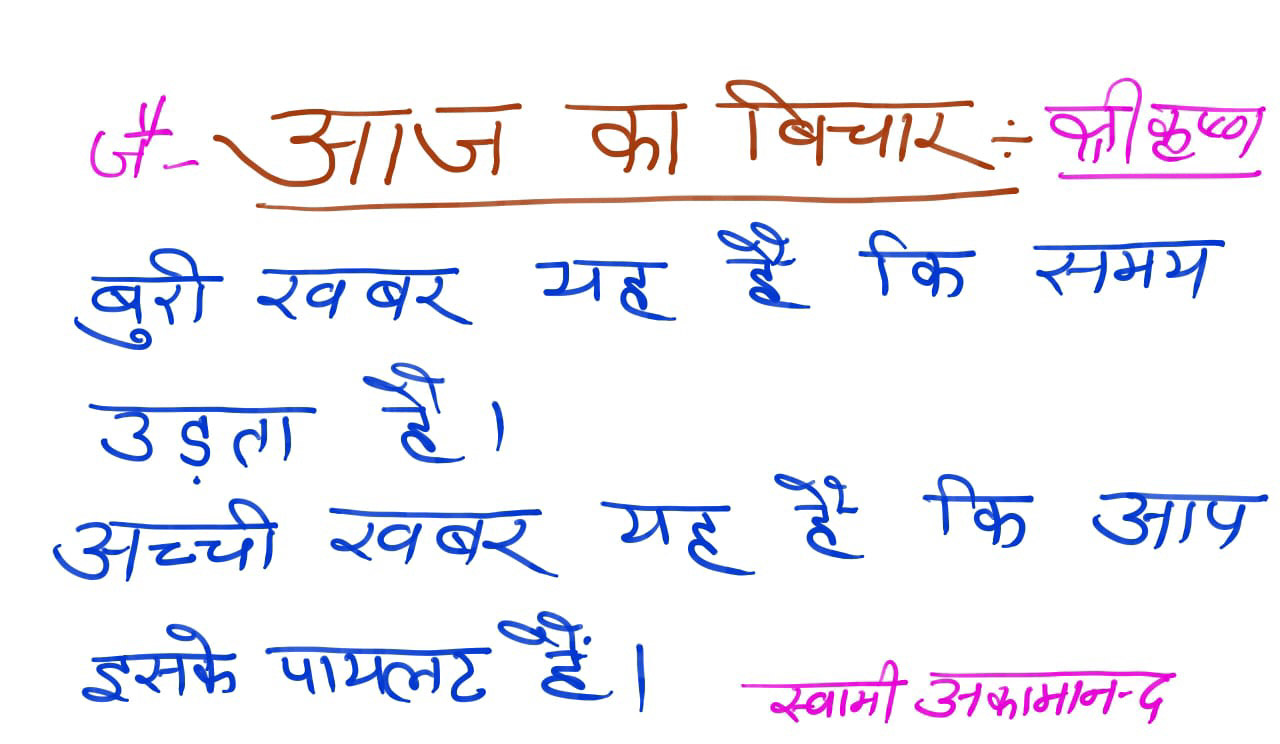 जै- आज का विचार ÷ श्री कृष्ण
बुरी खबर यह है कि समय
उड़ता है।
अच्ची खबर यह है कि आप
इसके पायलट हैं।
स्वामी अकामानन्द